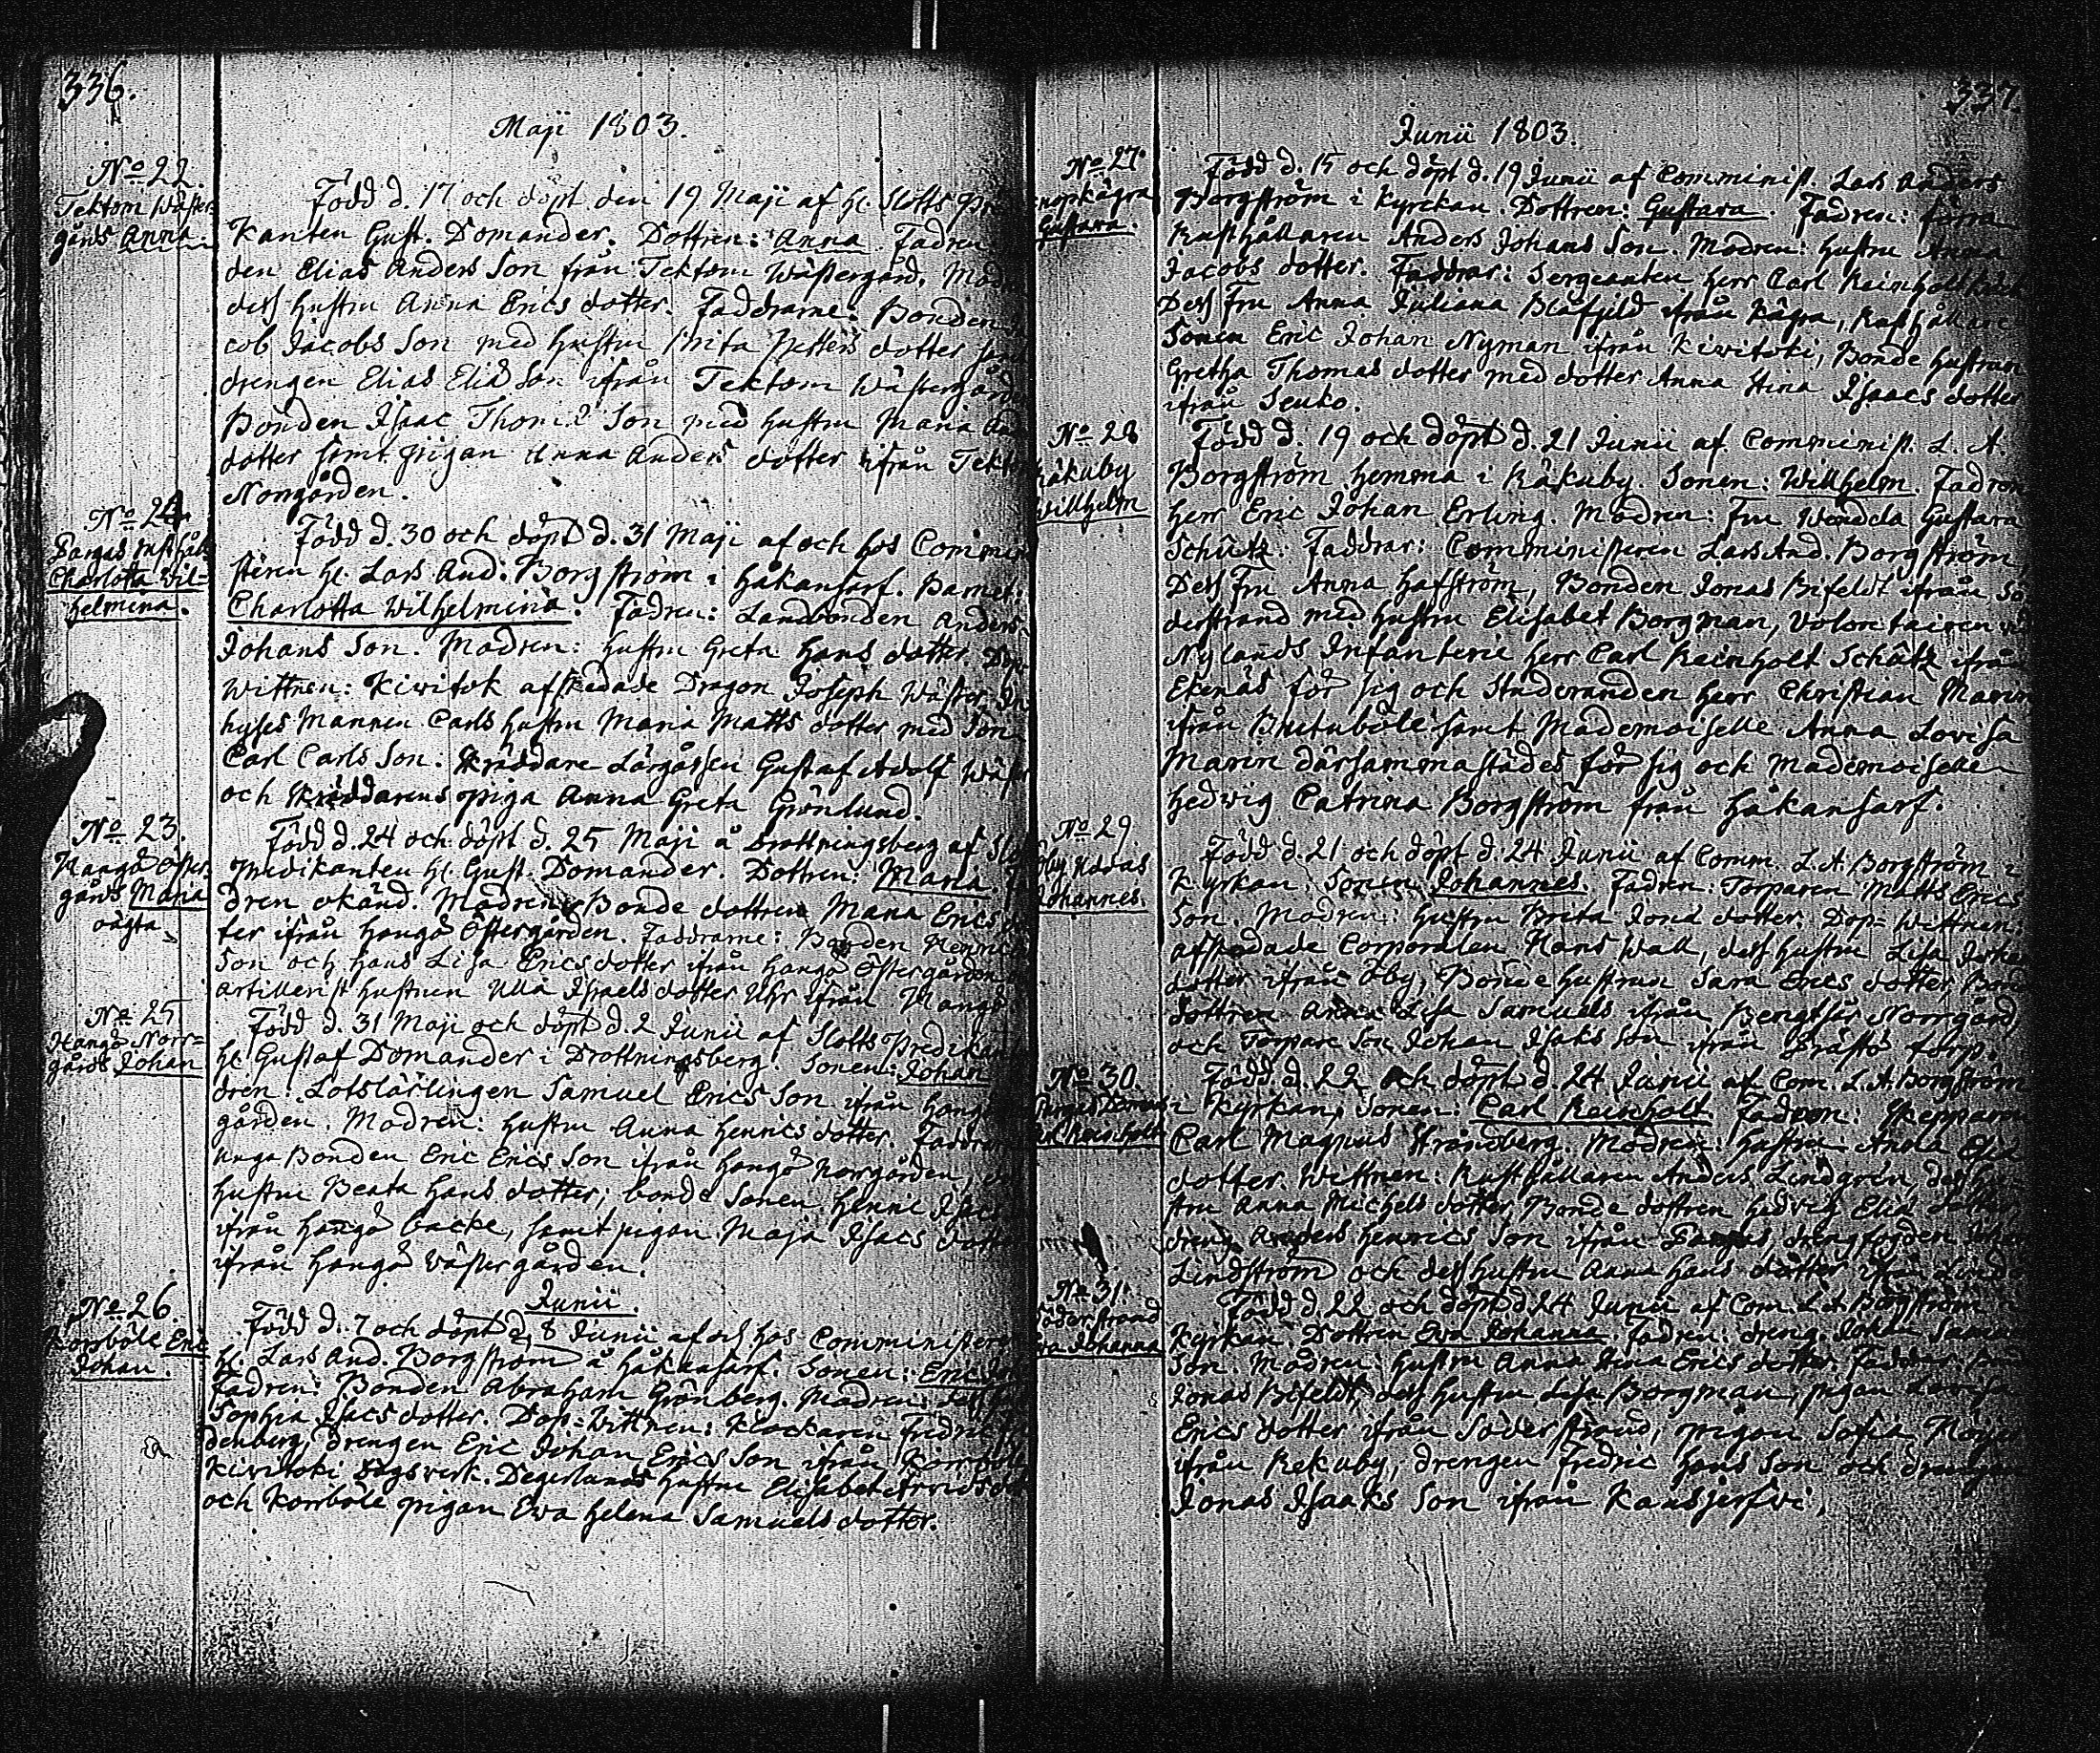 336.
Maji 1803.
No 22.
Tektom Wäster-
gårds Anna
Född d. 17 och döpt den 19 Maji af H. Slotts Pre
kanten Gust. Domander. Dottren: Anna. Fadren
den Elias Anders Son från Tektom Wästergård. Mod
dess hustru Anna Erics dotter. Faddrarne: Bonden
cob Jacobs Son med hustru Brita Petters dotter samt
drengen Elias Eliæ Son ifrån Tektom Wästergård
Bonden Isaac Thomæ Son med hustru Maria An
dotter samt pigan Anna Anders dotter ifrån Tekt
Norrgården.
No 24.
Pargas
Charlotta Wil=
helmina.
Född d. 30 och döpt d. 31 Maji af och hos Commini
steren H. Lars And. Borgström i Håkansarf. Barnet:
Charlotta Wilhelmina. Fadren: Landbonden Anders
Johans Son. Modren: hustru Greta Hans dotter. Dop-
Wittnen: Kivitok afskedade Dragon Joseph Wäster, In
hyses Mannen Carls hustru Maria Matts dotter med Son
Carl Carls Son. Skräddare Lärgåssen Gustaf Adolf Wäst
och Skräddarens piga Anna Greta Grönlund.
No 23.
Hangö Öster-
gårds Maria
oägta
Född d. 24 och döpt d. 25 Maji å Drottningsberg af Slo
Predikanten H. Gust. Domander. Dottren: Maria. F
dren okänd. Modren Bonde dottren Maria Erics d
ter ifrån Hangö Östergården. Faddrarne: Bonden Henric
Son och hans Lisa Erics dotter ifrån Hangö Östergården
Artillerist hustrun Ulla Israels dotter Uhr ifrån Hangö
No 25
Hangö Norr=
gårds Johan
Född d. 31 Maji och döpt d. 2 Junii af Slotts Predikant
H. Gustaf Domander i Drottningsberg. Sonen: Johan
dren: Lotslärlingen Samuel Erics Son ifrån Hangö
gården. Modren: hustru Anna Henrics dotter. Faddrar
unga Bonden Eric Erics Son ifrån Hangö Norrgården,
hustru Beata Hans dotter; bonde Sonen Henric Isacs
ifrån Hangö backe, samt pigan Maja Isacs dotter
ifrån Hangö Wästergården.
Junii.
No 26.
Korsböle Eric
Johan.
Född d. 7 och döpt d. 8 Junii af och hos Comministeren
H. Lars And. Borgström å Håkansarf. Sonen: Eric Jo
Fadren: Bonden Abraham Grönberg. Modren: dess hu
Sophia Isacs dotter. Dop=Wittnen: Klockaren Fredric
denberg, drengen Eric Johan Erics Son ifrån Korsböle
Kivitoki Dagsverk. Degerlunds hustru Elisabet Arvids dot
och Korsböle pigan Ewa Helena Samuels dotter.
337
Junii 1803.
No 27.
Gustava.
Född d. 15 och döpt d. 19 Junii af Comminist. Lars Anders
Borgström i Kyrckan. Dottren: Gustava. Fadren: förra
Rusthållaren Anders Johans Son. Modren: hustru Anna
Jacobs dotter. Faddrar: Sergeanten Herr Carl Reinholt
Dess Fru Anna Juliana Blåfjeld ifrån Kägra, Rusthållare
Sonen Eric Johan Nyman ifrån Kivitoki, Bonde hustrun
Gretha Thomas dotter med dotter Anna Stina Isaacs dotter
ifrån Seuko.
No 28
Räkuby
Wilhelm
Född d. 19 och döpt d. 21 Junii af Comminist. L. A.
Borgström hemma i Räkuby. Sonen: Wilhelm. Fadren
Herr Eric Johan Erling. Modren: Fru Wendla Gustava
Schütz. Faddrar: Comministeren Lars And. Borgström,
Dess Fru Anna Hafström, Bonden Jonas Bifeldt ifrån Sö
derstrand med hustru Elisabet Borgman, Volontairen vid
Nylands Infanterie Herr Carl Reinholt Schütz ifrån
Ekenäs för sig och Studeranden Herr Christian Marin
ifrån Brutuböle samt Mademoiselle Anna Lovisa
Marin därsammastädes för sig och Mademoiselle
Hedwig Catrina Borgström från Håkansarf.
No 29
Öby
Johannes.
Född d. 21 och döpt d. 24 Junii af Comm. L. A. Borgström i
Kyrkan. Sonen Johannes. Fadren: Torparen Matts Erics
Son. Modren: hustru Brita Jonæ dotter. Dop=Wittnen:
afskedade Corporalen Hans Wall, dess hustru Lisa Johans
dotter ifrån Öby, Bonde hustrun Sara Erics dotter, Bon
dottren Anna Lisa Samuels ifrån Bengtsår Norrgård,
och Torpare Son Johan Isaks Son ifrån Prästö torp.
No 30.
Carl Reinholt
Född d. 22 och döpt d. 24 Junii af Com. L. A. Borgström
i Kyrkan, Sonen: Carl Reinholt. Fadren: Skepparen
Carl Magnus Strandberg. Modren: hustru Anna Eliæ
dotter. Wittnen: Rusthållaren Anders Lindgrén, dess hu
stru Anna Michels dotter, Bonde dottren Hedvig Eliæ dotter
dreng Anders Henrics Son ifrån Pargas drengfogden
Lindström och dess hustru Anna Hans dotter ifrån
No 31.
Söderstrand
Eva Johanna
Född d. 22 och döpt d. 24 Junii af Com. L. A. Borgström
Kyrkan. Dottren Ewa Johanna. Fadren: dreng. Johan Samu
Son. Modren: hustru Anna Stina Erics dotter. Faddrar:
Jonas Bifeldt, dess hustru Lisa Borgman, pigan Lovisa
Erics dotter ifrån Söderstrand, pigan Sofia
ifrån Rekuby, drengen Fredric Hans Son och drengen
Jonas Isaaks Son ifrån Kansjerfvi,